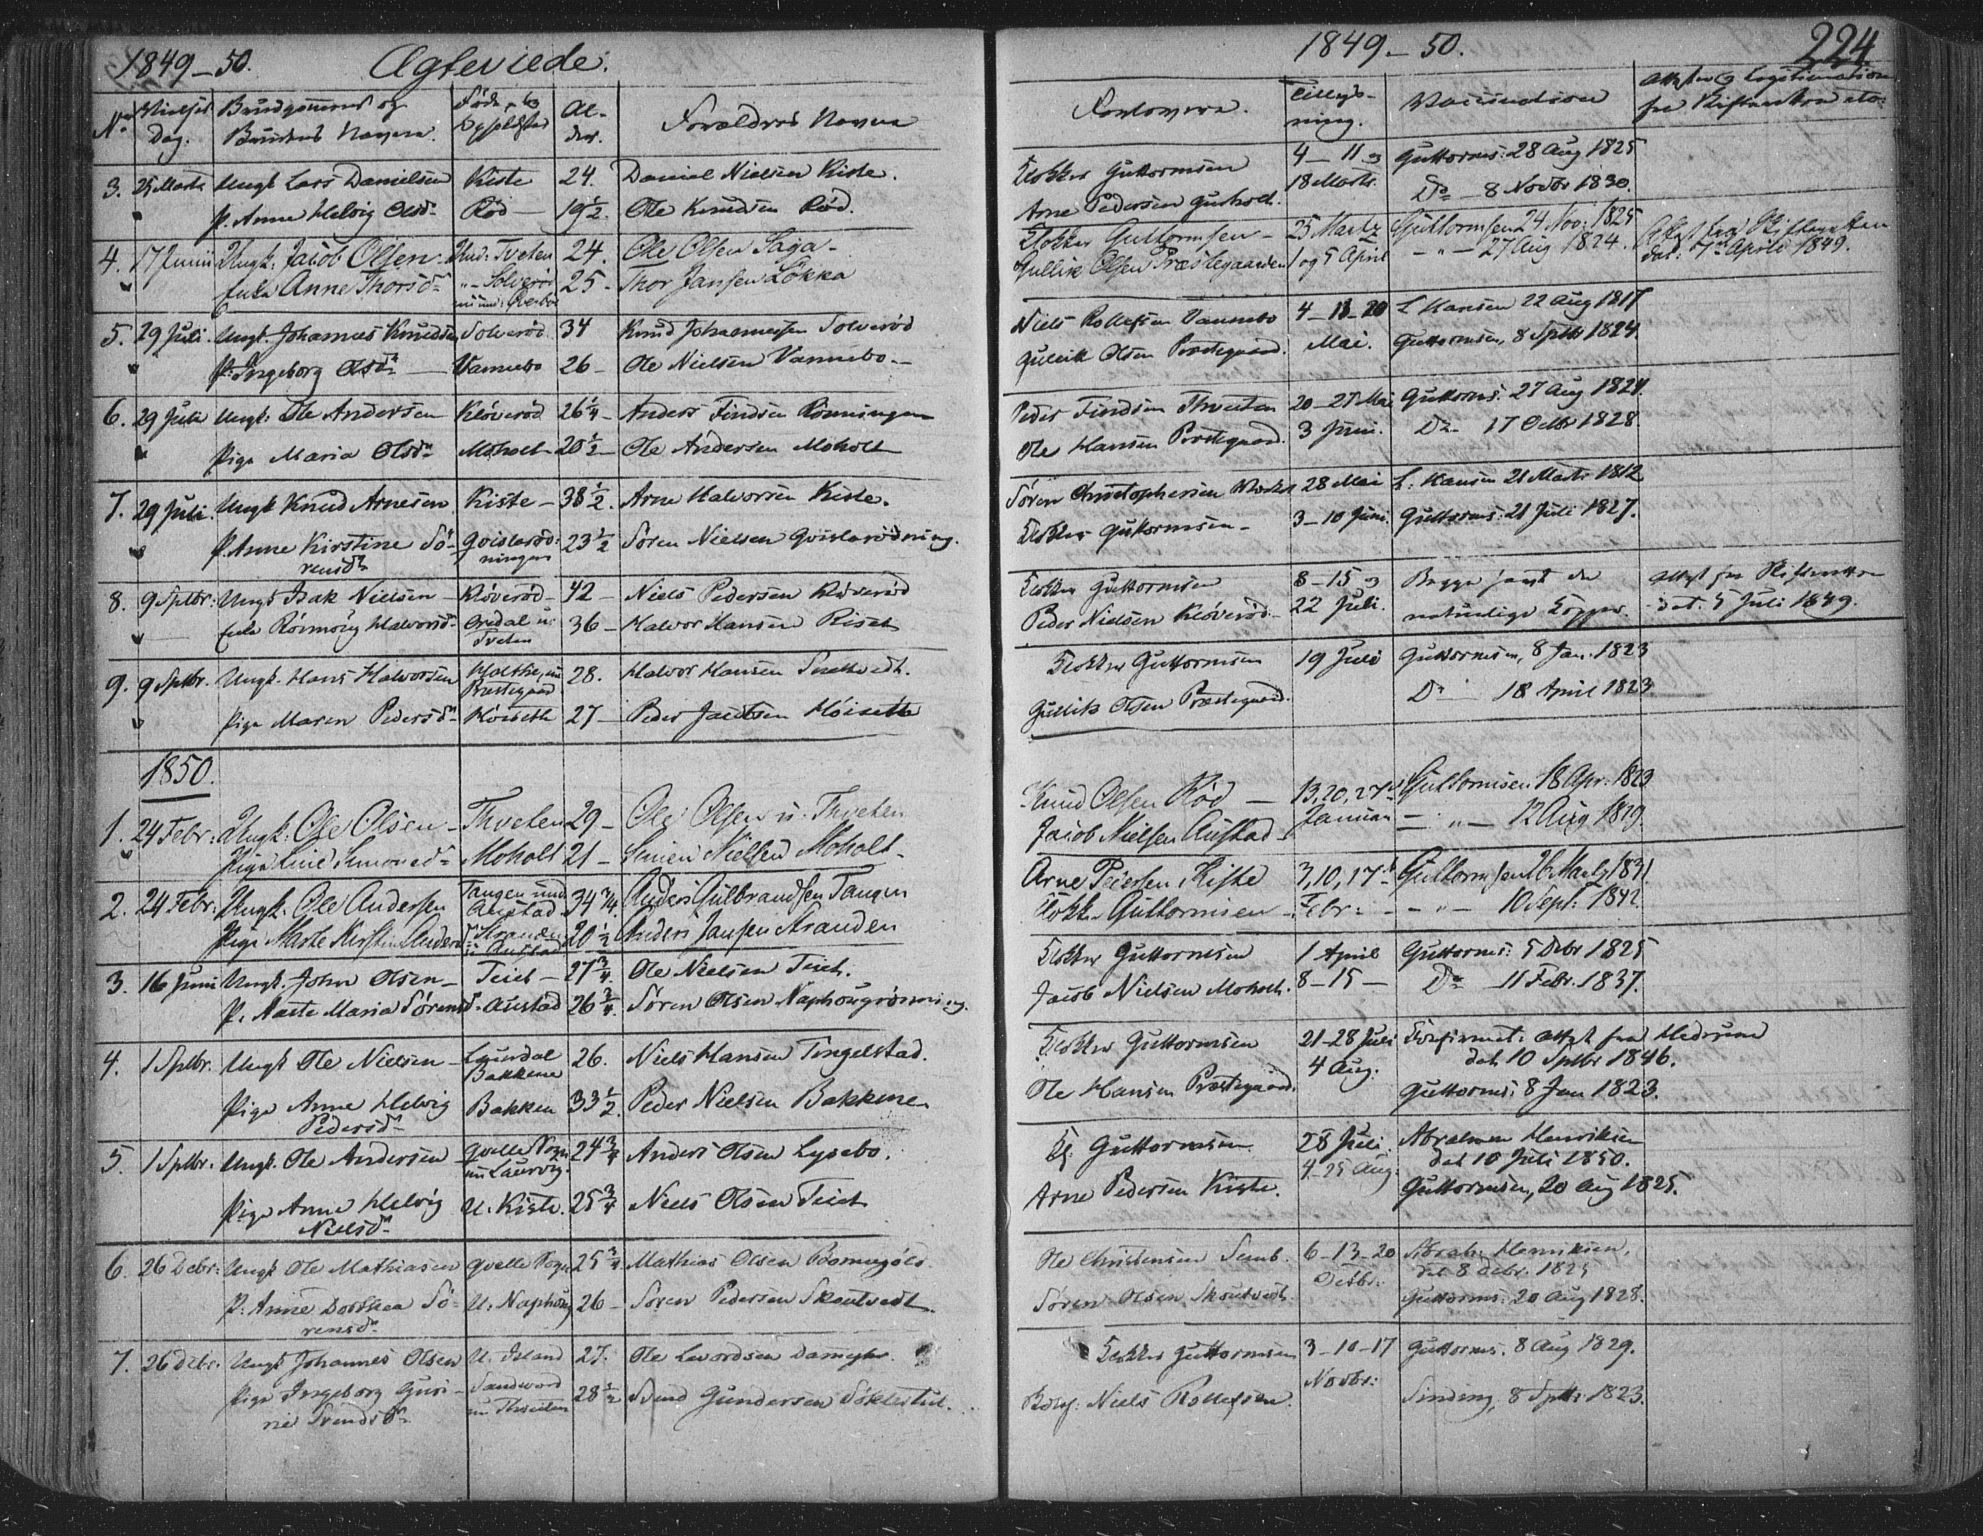 1849-50. Ægteviede.
No
Vielses Dag.
Brudgommens og Brudens Navne.
Føde- og Opholdssted
Alder.
Forældres Navne
3. 25 Marts Ungk Lars Danielsen Kiste 24. Daniel Nielsen Kiste.
P. Anne Helvig Olsd. Rød 19½. Ole Knudsen Rød.
4. 17 Junii Ungk. Jacob Olsen. Und. Tveten 24. Ole Olsen Saga
Enke Anne Thorsd. Solverød 25 Thor Jansen Løkka
5. 29 Juli. Ungk. Johannes Knudsen Solverød 34 Knud Johannessen Solverød
P. Ingeborg Olsd. Vannebo 26 Ole Nielsen Vannebo
6. 29 Juli Ungk. Ole Andersen Kløverød 26¼ Anders Findsen Rønningen
Pige Maria Olsd. Moholt 20½ Ole Andersen Moholt
7. 29 Juli. Ungk Knud Arnesen Kiste 38½. Arne Halvorsen Kiste.
P. Anne Kirstine Sørensd. 23½ Søren Nielsen
8. 9 Sptbr. Ungk Isak Nielsen Kløverød 42 Niels Pedersen Kløverød
Enke Halvorsd. Tveten 36 Halvor Hansen Riset
9. 9 Sptbr. Ungk. Hans Halvorsen Præstegaard 28. Halvor Hansen
Pige Maren Pedersd. Høiseth 27 Peder Jacobsen Høiseth
1850.
1. 24 Febr. Ungk. Ole Olsen Thveten 29 Ole Olsen u. Thveten
Pige Line Simonsd. Moholt 21 Simen Nielsen Moholt
2. 24 Febr. Ungk. Ole Andersen Tangen und. Austad 34¾. Anders Gulbrandsen Tangen
Pige Marte Kirstine Anders. Stranden u. Austad 20½ Anders Jansen Stranden
3. 16 Juni Ungk. John Olsen Teiet 27¾. Ole Nielsen Teiet.
P. Maria Sørensd. Austad 26¾ Søren Olsen
4. 1 Sptbr. Ungk Ole Nielsen Bakkene 26. Niels Hansen Tingelstad.
Pige Anne Helvig Pedersd. Bakken 33½. Peder Nielsen Bakkene
5. 1 Sptbr. Ungk. Ole Andersen Qvelle Sogn und. Laurvig. 24¾ Anders Olsen Lysebo.
Pige Anne Helvig Nielsd. U. Kiste. 25¾ Niels Olsen Teiet
6. 26 Debr. Ungk Ole Mathiasen Qvelle Sogn 25¾ Mathias Olsen
P. Anne Dorthea Sørensd. 26 Søren Pedersen Skoutvedt.
7. 26 Debr. Ungk Johannes Olsen U. Island 27.
Pige Ingeborg Svendsd. 28½ Svend Gundersen
1849-50. 224
Forlovere.
Tillysning.
Vaccination
Attester og Legitimation fra Skifteretten etc.
Klokker Guttormsen 4-11 og Guttorms. 28 Aug 1825
Arne Pedersen 18 Marts. Do 8 Novbr 1830.
Klokker Guttormsen 25 Martz Guttormsen 24 Nov. 1825 Attest fra Skifteretten
Gullik Olsen Præstegaarden 1 og 5 April 27 Aug 1824. dat. 7de April 1849.
Niels Rollefsen Vannebo 4-13-20 L. Hansen 22 Aug 1817
Gullik Olsen Præstegaard. Mai. Guttormsen, 8 Sptbr 1824.
Peder Findsen Thveten 20-27 Mai Guttorms. 27 Aug 1824.
Ole Hansen Præstegaard. 3 Juni. Do 17 Octbr 1828.
Søren Christophersen 28 Mai L. Hansen 21 Marts 1812
Klokker Guttormsen 3-10 Juni. Guttorms. 21 Juli 1827.
Klokker Guttormsen 8-15 og Begge havt de Attest fra Skifteretten
Peder Nielsen Kløverød 22 Juli. naturlige Kopper. dat. 5 Juli 1849.
Klokker Guttormsen 19 Juli Guttormsen, 8 Jan. 1823
Gullik Olsen Præstegaard. Do 18 April 1823
Knud Olsen Rød 13, 20, 27de Guttormsen 18 Apr. 1823
Jacob Nielsen Austad Januar 12 Aug 1829.
Arne Pedersen, Kiste 3, 10, 17de Guttormsen 26 Martz 1831
Klokk. Guttormsen Febr. 10 Sept. 1842
Klokker Guttormsen 1 April Guttorms. 5 Debr 1825
Jacob Nielsen Moholt. 8-15 Do 11 Febr. 1837.
Klokker Guttormsen 21-28 Juli Attest fra Hedrum
4 Aug. dat. 10 Sptbr 1846.
Ole Hansen Præstegaard. Guttorms. 8 Jan 1823.
Kl. Guttormsen 28 Juli. Abraham Henriksen
4-25 Aug. dat 10 Juli 1850.
Arne Pedersen Kiste. Guttormsen, 20 Aug 1825.
Ole Christensen Semb. 6-13-20 Abrah. Henriksen,
Octbr. dat 8 Debr. 1825
Søren Olsen Skoutvedt. Guttorms. 20 Aug 1828.
Klokker Guttormsen 3-10-17 Guttorms. 8 Aug 1829.
Niels Rollefsen. Novbr. Sinding, 8 Sptb. 1823.